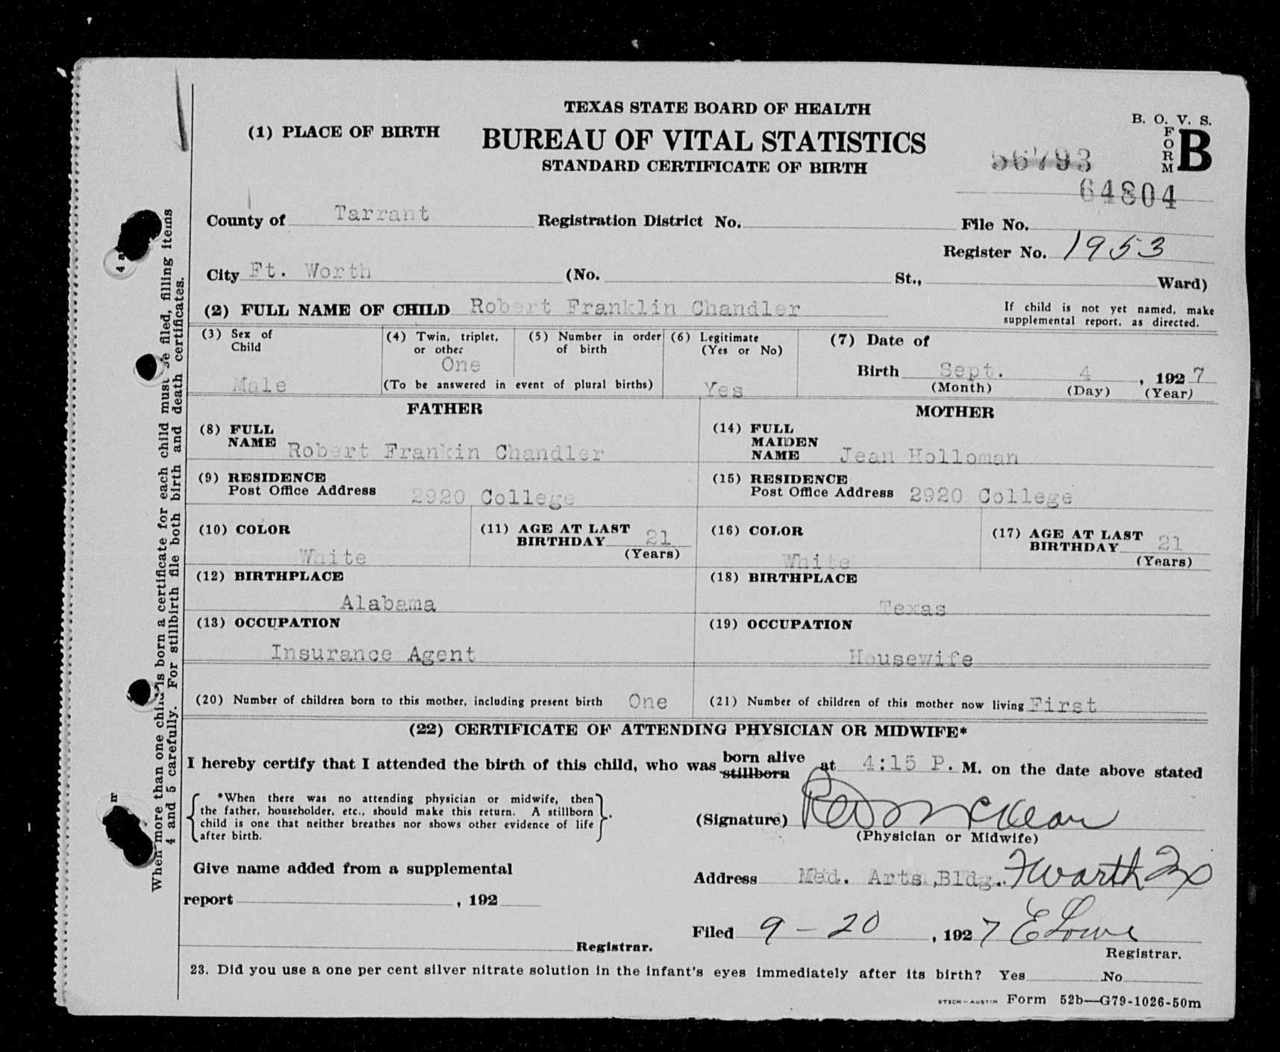 TEXAS STATE BOARD OF HEALTH
(1) PLACE OF BIRTH
BUREAU OF VITAL STATISTICS
STANDARD CERTIFICATE OF BIRTH
B. O. V. S.
FORM B
56793
64804
County of Tarrant Registration District No. File No.
Register No. 1953
City Ft. Worth (No. St., Ward)
(2) FULL NAME OF CHILD Robert Franklin Chandler
If child is not yet named, make
supplemental report, as directed.
(3) Sex of
Child
Male
(4) Twin, triplet,
or other
One
(To be answered in event of plural births)
(5) Number in order
of birth
(6) Legitimate
(Yes or No)
Yes
(7) Date of
Birth Sept. 4, 1927
(Month) (Day) (Year)
FATHER
(8) FULL
NAME Robert Frankin Chandler
(9) RESIDENCE
Post Office Address 2920 College
(10) COLOR
White
(11) AGE AT LAST
BIRTHDAY 21
(Years)
(12) BIRTHPLACE
Alabama
(13) OCCUPATION
Insurance Agent
MOTHER
(14) FULL
MAIDEN
NAME Jean Holloman
(15) RESIDENCE
Post Office Address 2920 College
(16) COLOR
White
(17) AGE AT LAST
BIRTHDAY 21
(Years)
(18) BIRTHPLACE
Texas
(19) OCCUPATION
Housewife
(20) Number of children born to this mother, including present birth One
(21) Number of children of this mother now living First
(22) CERTIFICATE OF ATTENDING PHYSICIAN OR MIDWIFE*
I hereby certify that I attended the birth of this child, who was born alive stillborn at 4:15 P. M. on the date above stated
*When there was no attending physician or midwife, then
the father, householder, etc., should make this return. A stillborn
child is one that neither breathes nor shows other evidence of life
after birth.
(Signature) McKean
(Physician or Midwife)
Give name added from a supplemental
report , 192
Registrar.
Address Med. Arts Bldg. Ft Worth Tx
Filed 9-20, 1927 E Lowe
Registrar.
23. Did you use a one per cent silver nitrate solution in the infant's eyes immediately after its birth? Yes No
Form 52b—G79-1026-50m
When more than one child is born a certificate for each child must be filed, filling items
4 and 5 carefully. For stillbirth file both birth and death certificates.